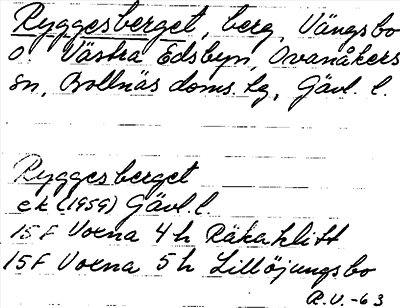 Ryggesberget, berg, Vängsbo
o. Västra Edsbyn, Ovanåkers
sn, Bollnäs doms. lg, Gävl. l.
Ryggesberget
ek (1959) Gävl. l.
15 F Voxna 4 h Räkaklitt
15 F Voxna 5 h Lillöjungsbo
R.V. -63